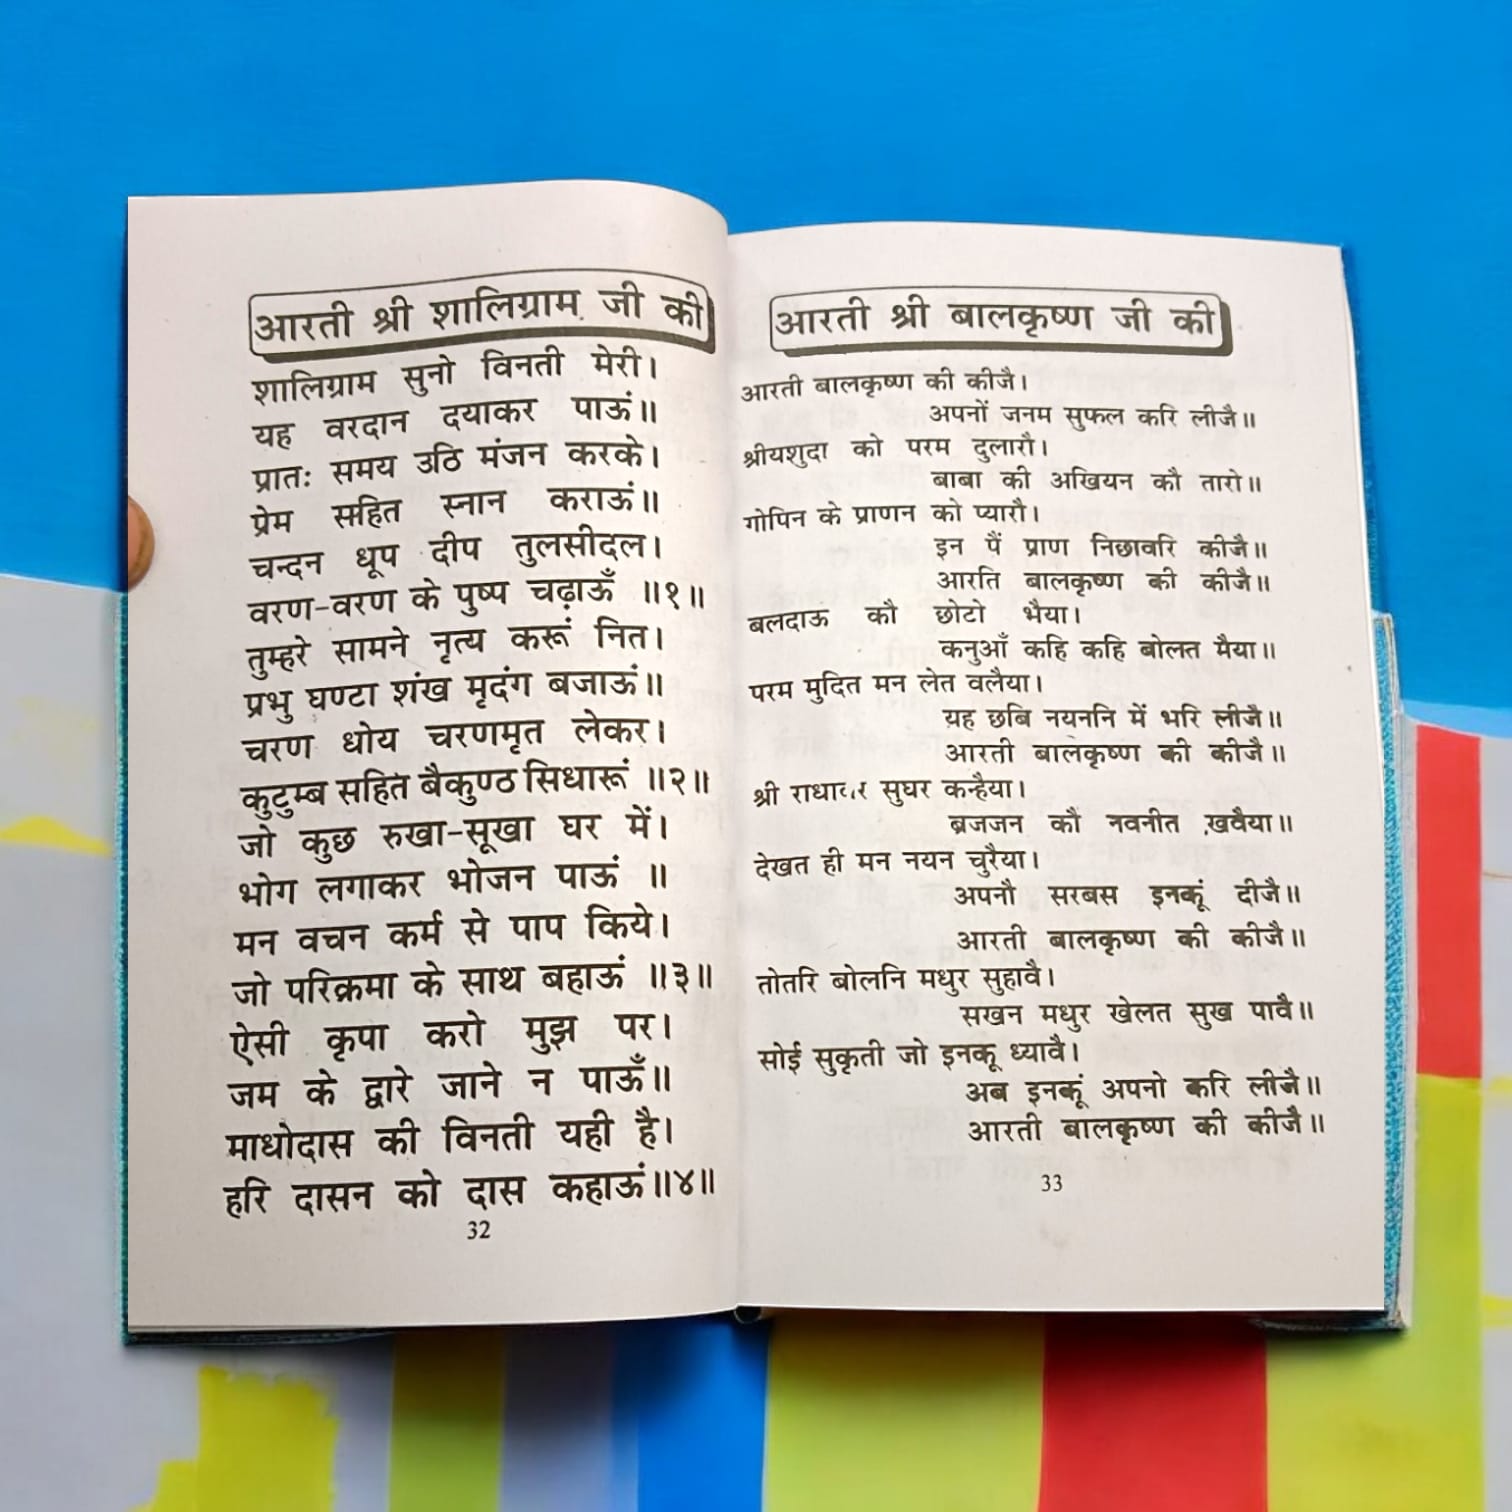 आरती श्री शालिग्राम जी की
शालिग्राम सुनो विनती मेरी।
यह वरदान दयाकर पाऊं॥
प्रातः समय उठि मंजन करके।
प्रेम सहित स्नान कराऊं॥
चन्दन धूप दीप तुलसीदल।
वरण-वरण के पुष्प चढ़ाऊँ ॥१॥
तुम्हरे सामने नृत्य करूं नित।
प्रभु घण्टा शंख मृदंग बजाऊं॥
चरण धोय चरणमृत लेकर।
कुटुम्ब सहित बैकुण्ठ सिधारूं ॥२॥
जो कुछ रुखा-सूखा घर में।
भोग लगाकर भोजन पाऊं ॥
मन वचन कर्म से पाप किये।
जो परिक्रमा के साथ बहाऊं ॥३॥
ऐसी कृपा करो मुझ पर।
जम के द्वारे जाने न पाऊँ॥
माधोदास की विनती यही है।
हरि दासन को दास कहाऊं॥४॥
32
आरती श्री बालकृष्ण जी की
आरती बालकृष्ण की कीजै।
अपनों जनम सुफल करि लीजै॥
श्रीयशुदा को परम दुलारौ।
बाबा की अखियन कौ तारो॥
गोपिन के प्राणन को प्यारौ।
इन पैं प्राण निछावरि कीजै॥
आरति बालकृष्ण की कीजै॥
बलदाऊ कौ छोटो भैया।
कनुआँ कहि कहि बोलत मैया॥
परम मुदित मन लेत वलैया।
यह छबि नयननि में भरि लीजै॥
आरती बालकृष्ण की कीजै॥
श्री सुघर कन्हैया।
ब्रजजन कौ नवनीत खवैया॥
देखत ही मन नयन चुरैया।
अपनौ सरबस इनकूं दीजै॥
आरती बालकृष्ण की कीजै॥
तोतरि बोलनि मधुर सुहावै।
सखन मधुर खेलत सुख पावै॥
सोई सुकृती जो इनकू ध्यावै।
अब इनकूं अपनो करि लीजै॥
आरती बालकृष्ण की कीजै॥
33